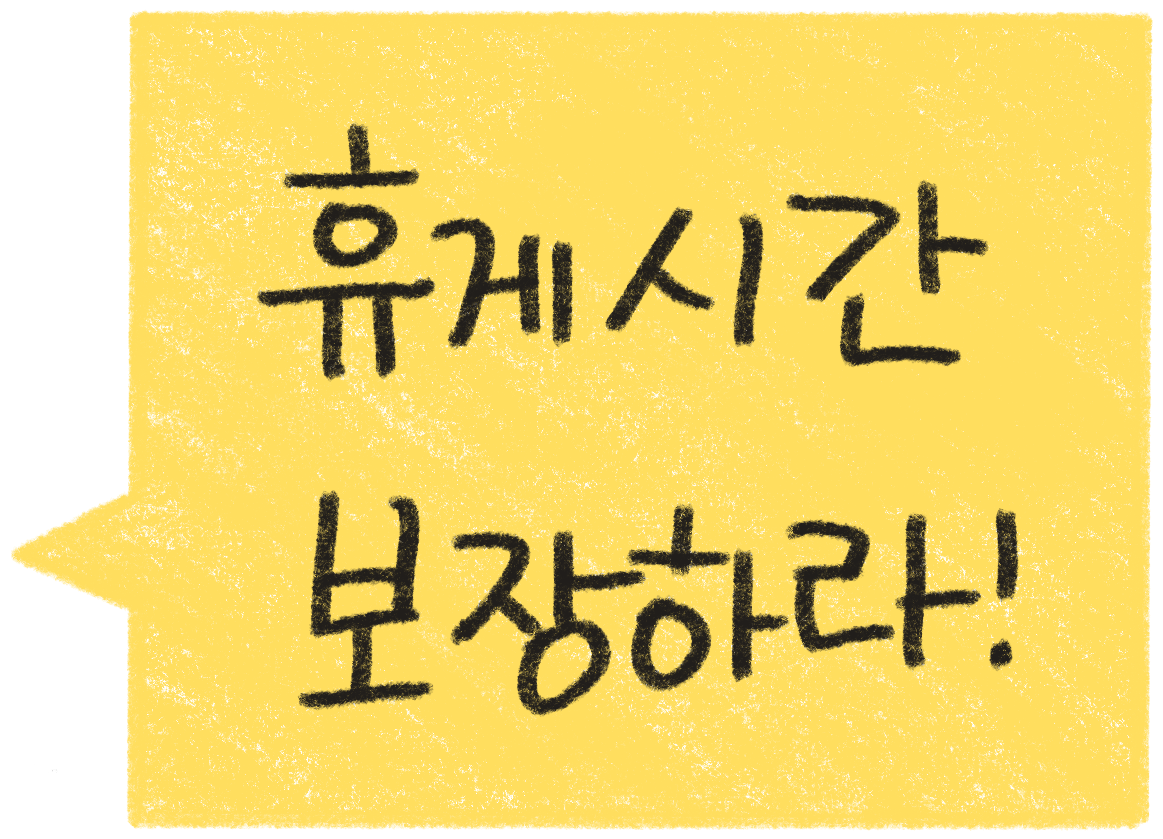 휴게시간
보장하라!